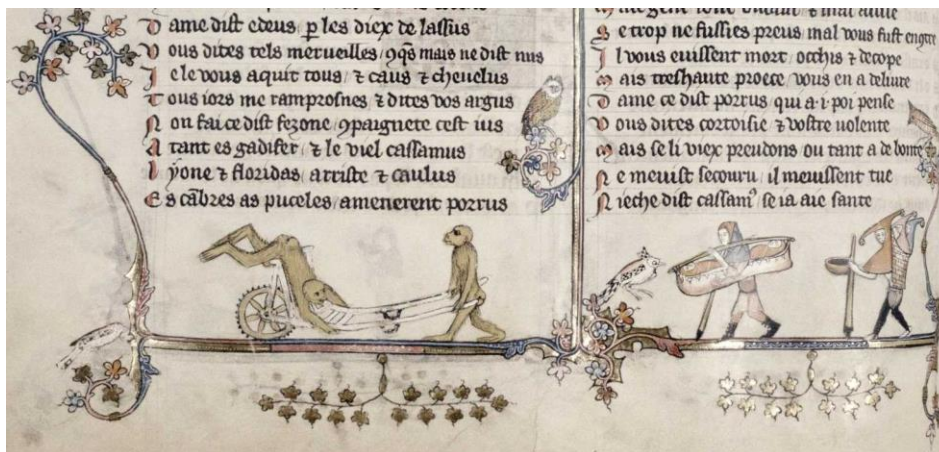 D ame dist edeus ꝑ les diex de lassus
V ous dites tels merueilles /qͣ mais ne dist nus
J e le vous aquit tous / ⁊ caus ⁊ cheuelus
T ous iors me ramprosnes ⁊ dites vos argus
N on fai ce dist fezone ꝯpaignete cest ius
A tant es gadifer / ⁊ le viel cassamus
L yone ⁊ floridas / ariste ⁊ caulus
E s cābres as puceles / amenerent porrus
S e trop ne fussies preus / mal vous fust
J l vous euissent mort / occhis ⁊ decope
M ais tres haute proece / vous en a deliure
D ame ce dist porrus qui a .i. poi pense
V ous dites cortoisie ⁊ vostre uolente
M ais se li viex preudons ou tant a de bonte
N e meuist secouru / il meuissent tue
N ieche dist cassamꝰ se ia aie sante